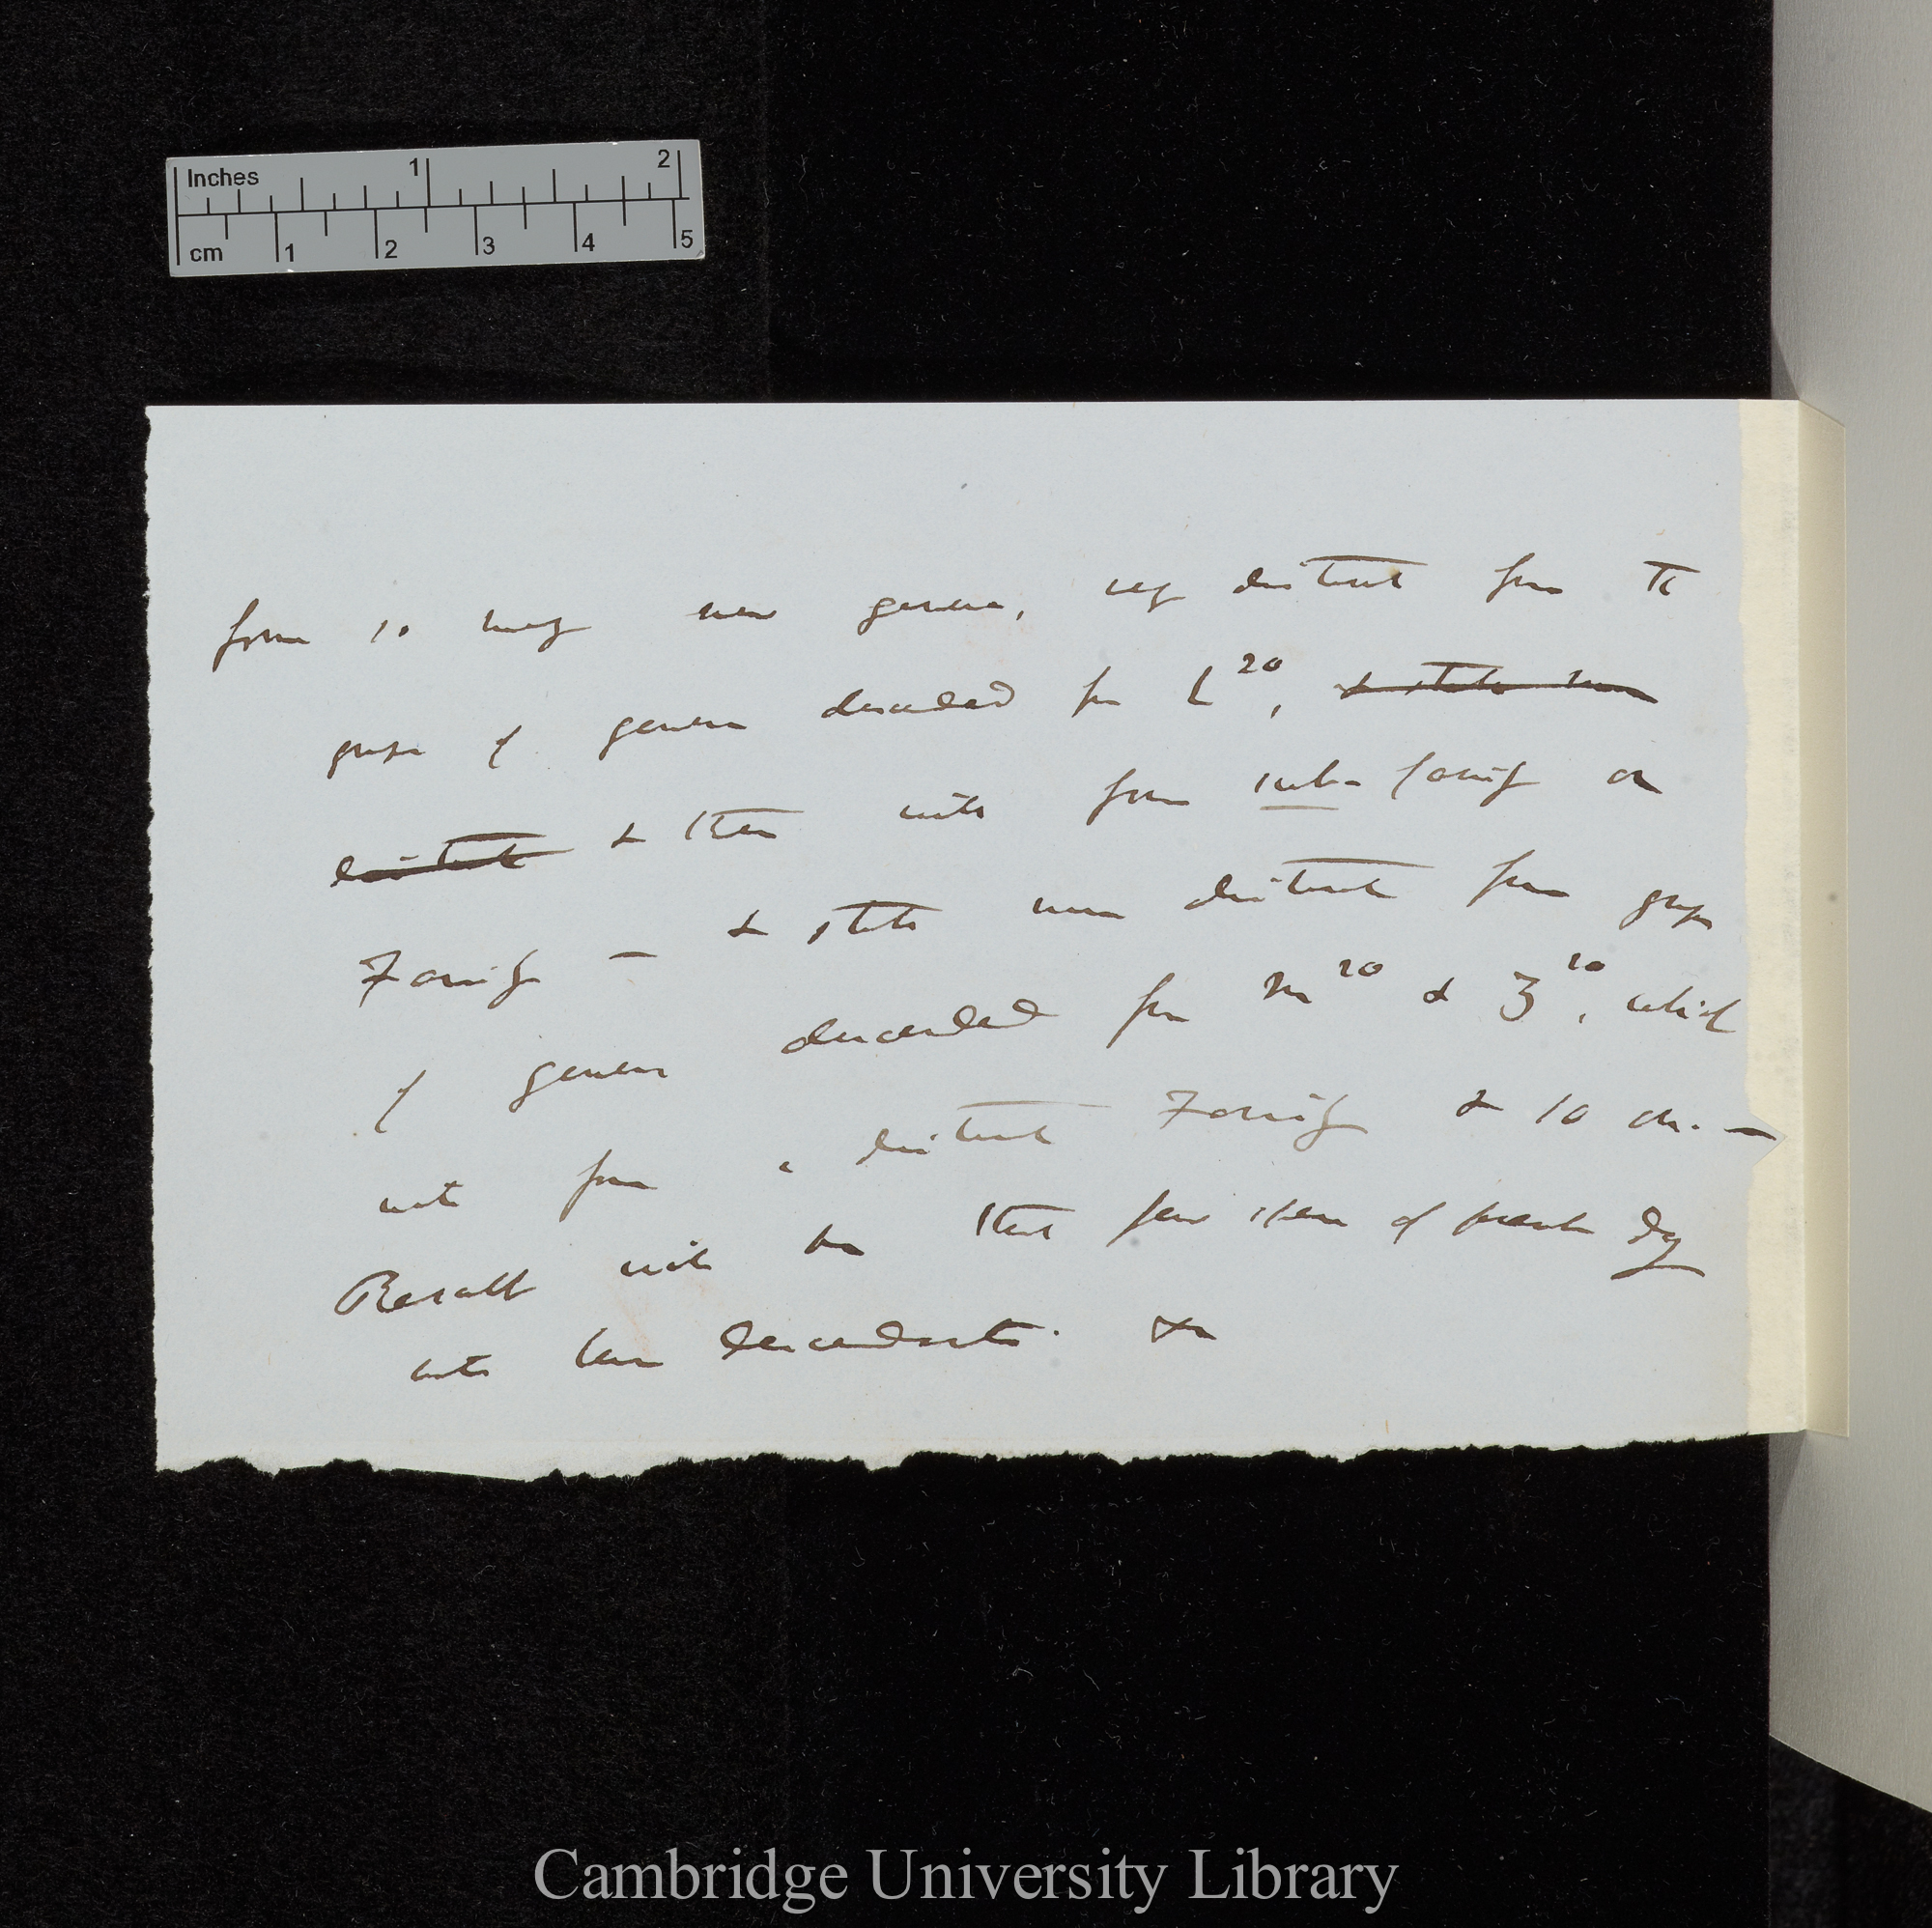 Inches 1 2
cm 1 2 3 4 5
form so many new genera, very distinct from the
groups of genera descended from L²⁰, & still more
distinct & then will form sub-family or
Family — & still more distinct from groups
of genera descended from M²⁰ & Z²⁰, which
will form a distinct Family & so on. —
Result will be that few of present day
will have descendants. &c
Cambridge University Library